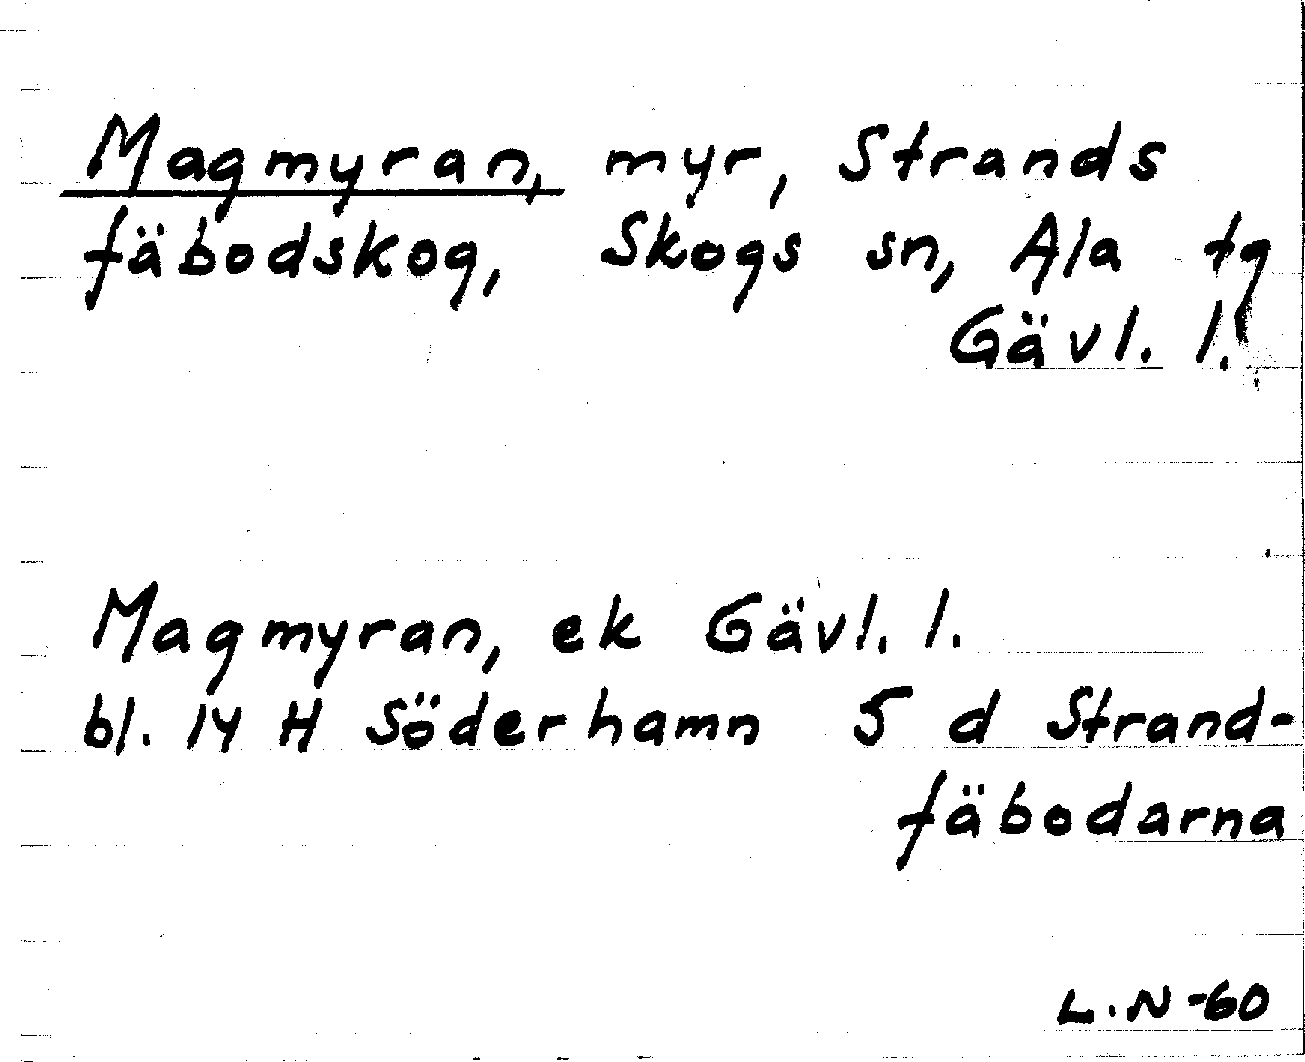 Magmyran, myr, Strands
fäbodskog, Skogs sn, Ala tg
Gävl. l.
Magmyran, ek Gävl. l.
bl. 14 H Söderhamn 5 d Strand-
fäbodarna
L.N-60